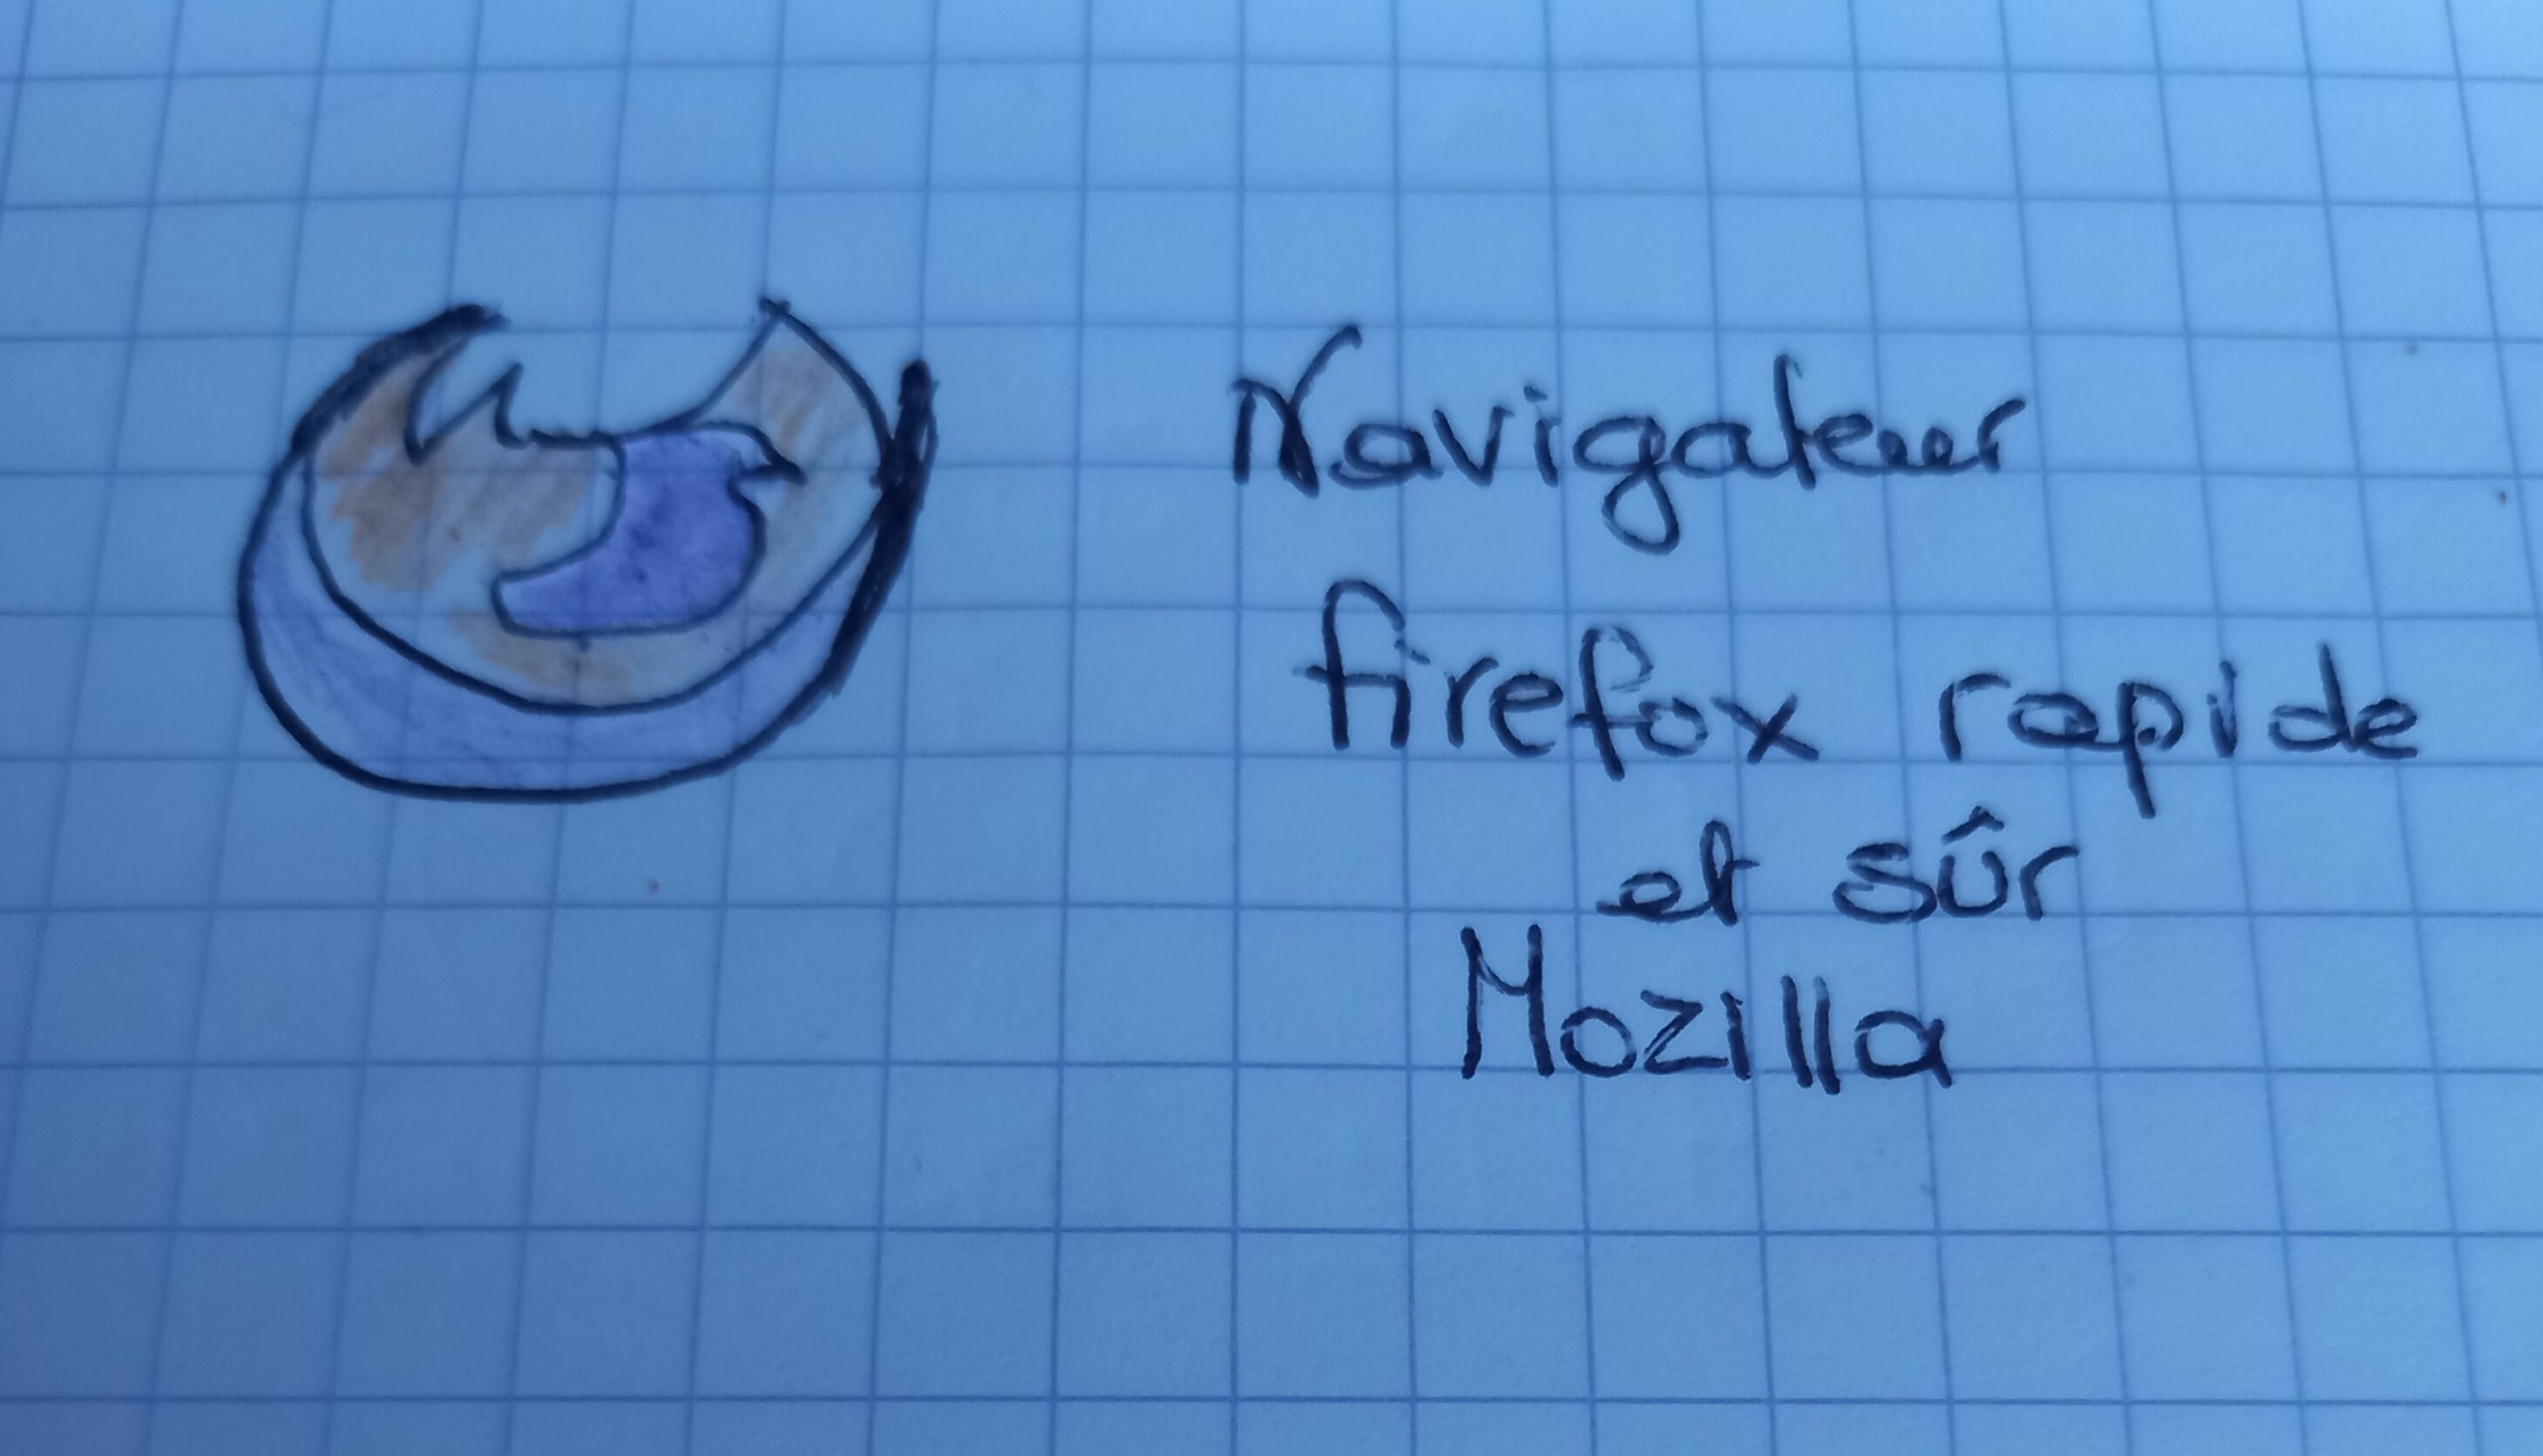 Navigateur
firefox rapide
et sûr
Mozilla